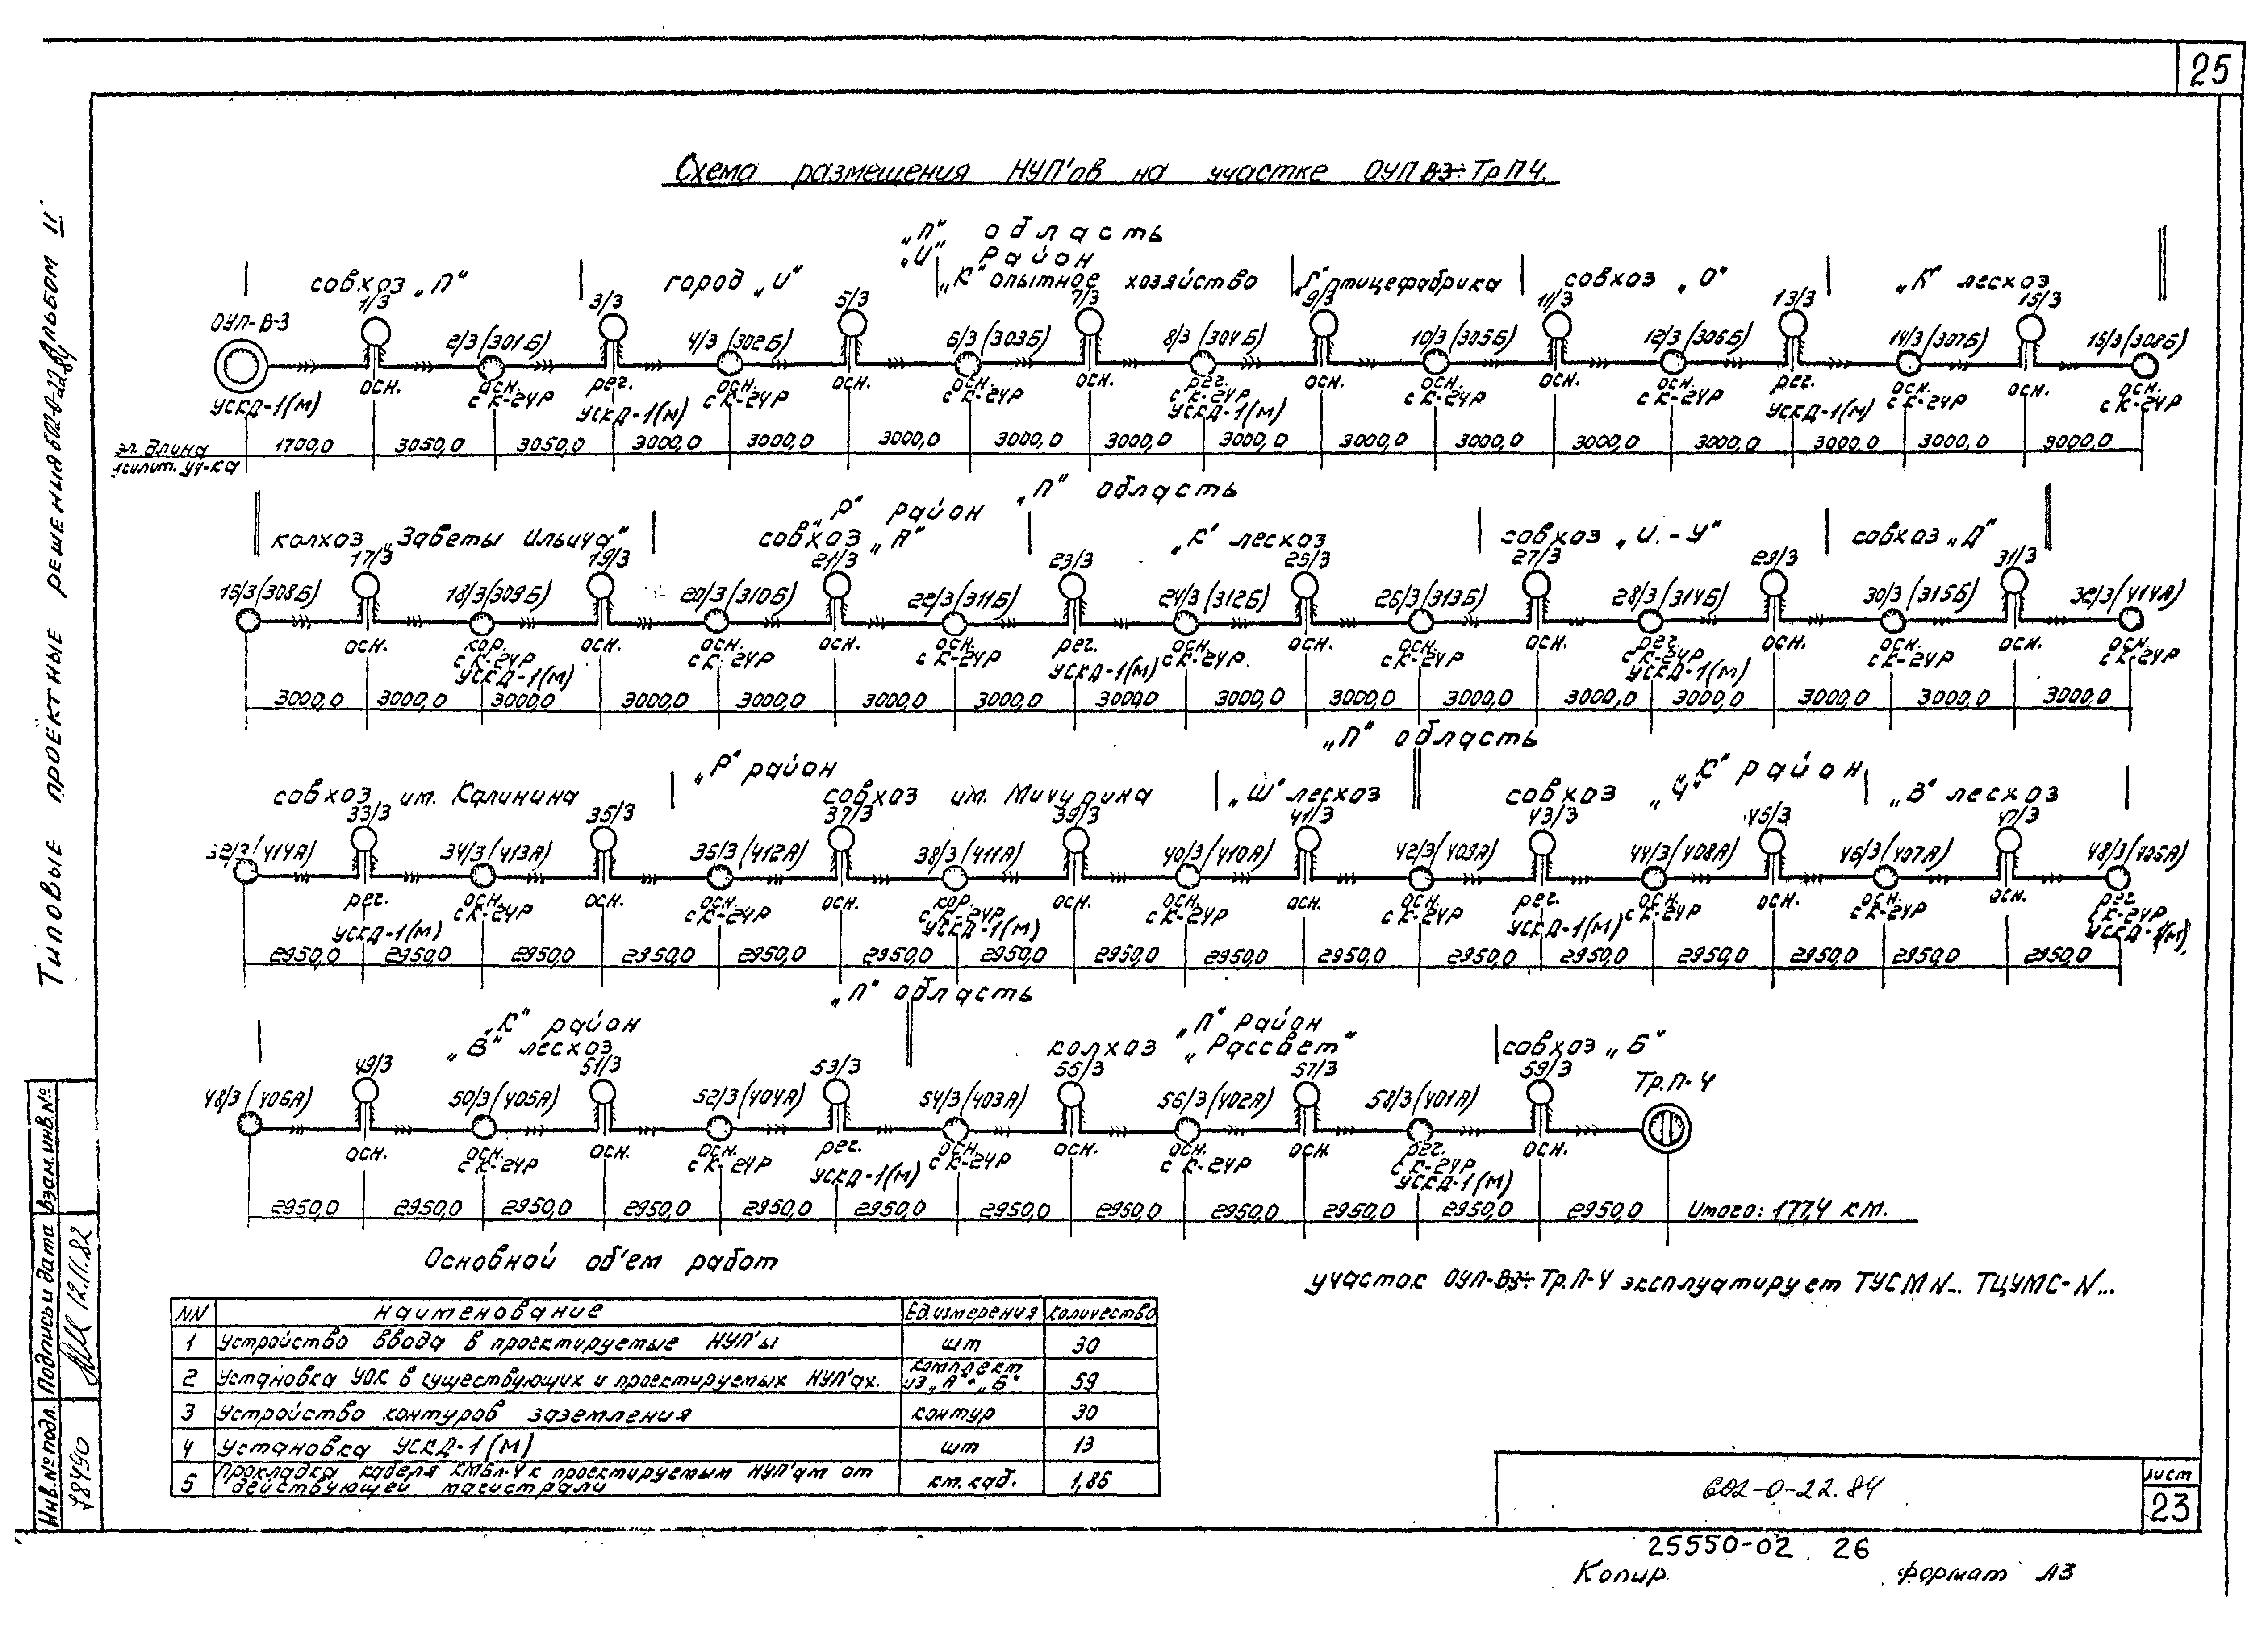 25
Схема размещения НУП'ов на участке ОУП В3÷ТрП4.
„П" область
„И" район
совхоз „П"
город „И"
„К" опытное хозяйство
„Г" птицефабрика
совхоз „О"
„К" лесхоз
1/3 3/3 5/3 7/3 9/3 11/3 13/3 15/3
ОУП-В-3 2/3(301Б) 4/3(302Б) 6/3(303Б) 8/3(304Б) 10/3(305Б) 12/3(306Б) 14/3(307Б) 16/3(308Б)
осн. осн. рег. осн. осн. осн. осн. рег. осн. осн. осн. осн. рег. осн. осн. осн.
с К-24Р с К-24Р с К-24Р с К-24Р с К-24Р с К-24Р с К-24Р с К-24Р
УСКД-1(м) УСКД-1(м) УСКД-1(м) УСКД-1(м)
эл. длина
усилит. уч-ка
1700,0 3050,0 3050,0 3000,0 3000,0 3000,0 3000,0 3000,0 3000,0 3000,0 3000,0 3000,0 3000,0 3000,0 3000,0 3000,0
„П" область
„Р" район
колхоз „Заветы Ильича"
совхоз „А"
„К" лесхоз
совхоз „И.-У"
совхоз „Д"
17/3 19/3 21/3 23/3 25/3 27/3 29/3 31/3
16/3(308Б) 18/3(309Б) 20/3(310Б) 22/3(311Б) 24/3(312Б) 26/3(313Б) 28/3(314Б) 30/3(315Б) 32/3(414А)
осн. кор. осн. осн. осн. осн. рег. осн. осн. осн. осн. рег. осн. осн. осн. осн.
с К-24Р с К-24Р с К-24Р с К-24Р с К-24Р с К-24Р с К-24Р с К-24Р
УСКД-1(м) УСКД-1(м) УСКД-1(м)
3000,0 3000,0 3000,0 3000,0 3000,0 3000,0 3000,0 3000,0 3000,0 3000,0 3000,0 3000,0 3000,0 3000,0 3000,0 3000,0
„П" область
„Р" район
„К" район
совхоз им. Калинина
совхоз им. Мичурина
„Ш" лесхоз
совхоз „Ч"
„В" лесхоз
33/3 35/3 37/3 39/3 41/3 43/3 45/3 47/3
32/3(414А) 34/3(413А) 36/3(412А) 38/3(411А) 40/3(410А) 42/3(409А) 44/3(408А) 46/3(407А) 48/3(406А)
рег. осн. осн. осн. осн. кор. осн. осн. осн. осн. рег. осн. осн. осн. осн. рег.
с К-24Р с К-24Р с К-24Р с К-24Р с К-24Р с К-24Р с К-24Р с К-24Р
УСКД-1(м) УСКД-1(м) УСКД-1(м) УСКД-1(м)
2950,0 2950,0 2950,0 2950,0 2950,0 2950,0 2950,0 2950,0 2950,0 2950,0 2950,0 2950,0 2950,0 2950,0 2950,0 2950,0
„П" область
„К" район
„П" район
„В" лесхоз
колхоз „Рассвет"
совхоз „Б"
49/3 51/3 53/3 55/3 57/3 59/3
48/3(406А) 50/3(405А) 52/3(404А) 54/3(403А) 56/3(402А) 58/3(401А) Тр.П-4
осн. осн. осн. осн. рег. осн. осн. осн. осн. рег. осн.
с К-24Р с К-24Р с К-24Р с К-24Р с К-24Р
УСКД-1(м) УСКД-1(м)
2950,0 2950,0 2950,0 2950,0 2950,0 2950,0 2950,0 2950,0 2950,0 2950,0 2950,0 2950,0 Итого: 177,4 км.
Основной об'ем работ
участок ОУП-В3÷Тр.П-4 эксплуатирует ТУСМ N... ТЦУМС-N...
NN Наименование Ед.измерения Количество
1 Устройство ввода в проектируемые НУП'ы шт 30
2 Установка УОК в существующих и проектируемых НУП'ах. комплект из „А"+„Б" 59
3 Устройство контуров заземления контур 30
4 Установка УСКД-1(м) шт 13
5 Прокладка кабеля КМБл-4 к проектируемым НУП'ам от действующей магистрали км.каб. 1,86
602-0-22.84
лист
23
25550-02 26
Копир. формат А3
Типовые проектные решения 602-0-22.84 Альбом II
Инв.№ подл. Подпись и дата Взам.инв.№
78490
12.11.82